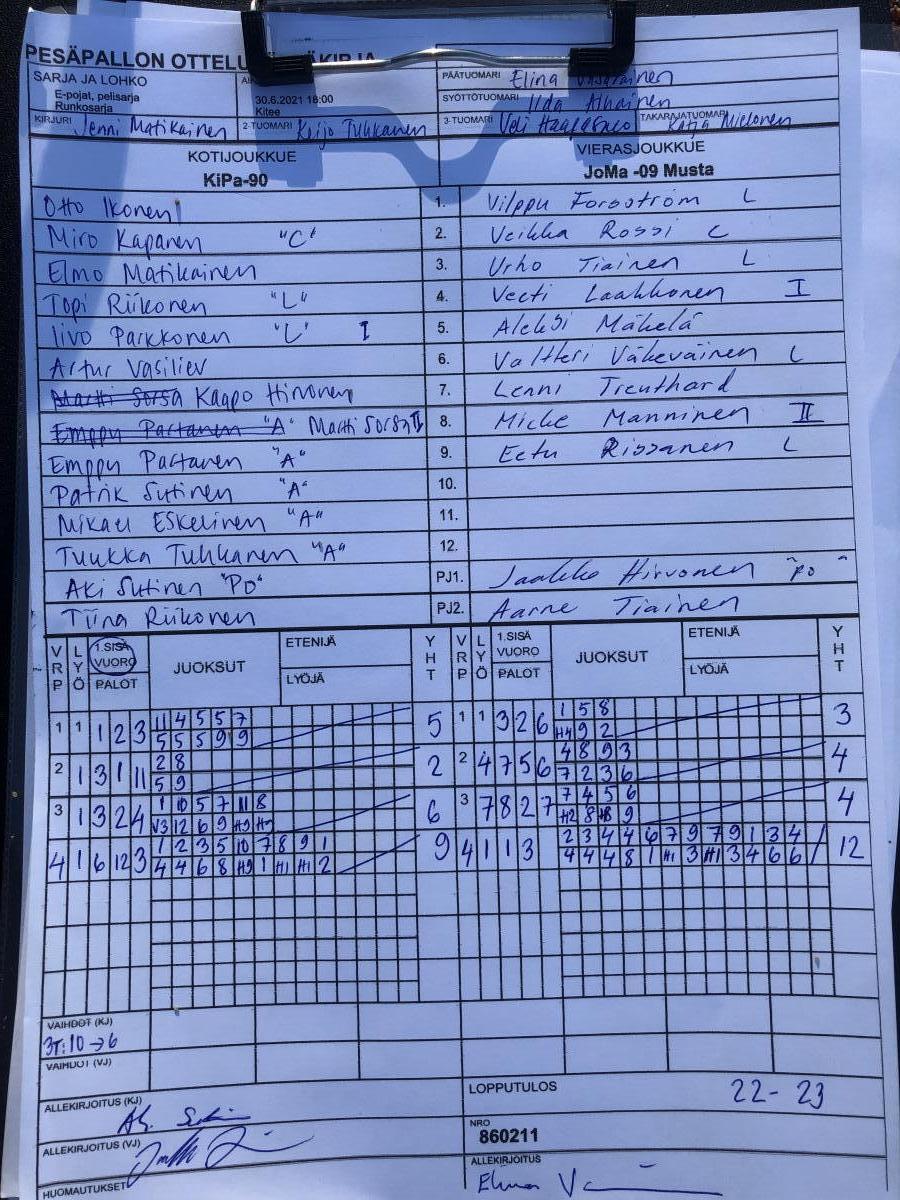 PESÄPALLON OTTELU
SARJA JA LOHKO
E-pojat, pelisarja
Runkosarja
30.6.2021 18:00
Kitee
PÄÄTUOMARI Elina
SYÖTTÖTUOMARI Iida
KIRJURI Jenni Matikainen
2-TUOMARI Keijo Tuhkanen
3-TUOMARI Veli
TAKARAJATUOMARI Katja
KOTIJOUKKUE
KiPa-90
VIERASJOUKKUE
JoMa -09 Musta
Otto Ikonen 1. Vilppu Forsström L
Miro Kapanen "C" 2. Veikka Rossi C
Elmo Matikainen 3. Urho Tiainen L
Topi Riikonen "L" 4. Veeti Laakkonen I
Iivo Parkkonen "L" I 5. Aleksi Mäkelä
Artur Vasiliev 6. Valtteri Väkeväinen L
Martti Sorsa Kaapo Hirvonen 7. Lenni Treuthard
Emppu Partanen "A" Martti Sorsa II 8. Micke Manninen II
Emppu Partanen "A" 9. Eetu Rissanen L
Patrik Sutinen "A" 10.
Mikael Eskelinen "A" 11.
Tuukka Tuhkanen "A" 12.
Aki Sutinen "PO" PJ1. Jaakko Hirvonen "PO"
Tiina Riikonen PJ2. Aarne Tiainen
VRP LYÖ 1.SISÄ VUORO PALOT JUOKSUT ETENIJÄ LYÖJÄ YHT VRP LYÖ 1.SISÄ VUORO PALOT JUOKSUT ETENIJÄ LYÖJÄ YHT
1 1 1 2 3 11 4 5 5 7 5 1 1 3 2 6 1 5 8 3
5 5 5 9 9 H4 9 2
2 1 3 1 11 2 8 2 2 4 7 5 6 4 8 9 3 4
5 9 7 2 3 6
3 1 3 2 4 1 10 5 7 11 8 6 3 7 8 2 7 7 4 5 6 4
V3 12 6 9 H9 H9 H2 8 H8 9
4 1 6 12 3 1 2 3 5 10 7 8 9 1 9 4 1 1 3 2 3 4 4 6 7 9 7 9 1 3 4 12
4 4 6 8 H9 1 H1 H1 2 4 4 4 8 1 H1 3 H1 3 4 6 6
VAIHDOT (KJ)
3T:10→6
VAIHDOT (VJ)
ALLEKIRJOITUS (KJ)
LOPPUTULOS 22-23
ALLEKIRJOITUS (VJ)
NRO
860211
HUOMAUTUKSET
ALLEKIRJOITUS
Elina